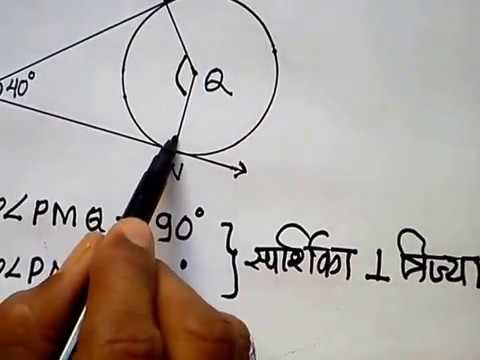 40°
Q
N
∠PMQ = 90°
∠PN
} स्पर्शिका ⊥ त्रिज्या